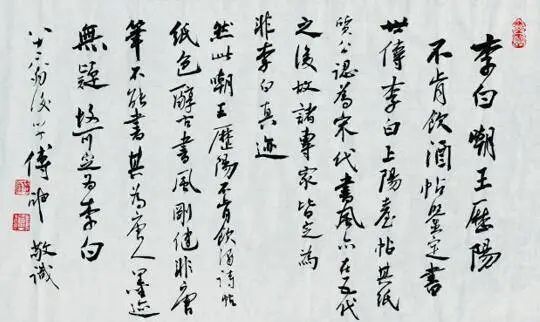 李白嘲王歷陽
不肯飲酒帖鑒定書
世傳李白上陽臺帖其紙
質公認為宋代書風亦在五代
之後故諸專家皆定為
非李白真迹
然此嘲王歷陽不肯飲酒詩帖
紙色醇古書風剛健非唐
筆不能書其為唐人墨迹
無疑故可定為李白
八十六翁後學傅申敬識